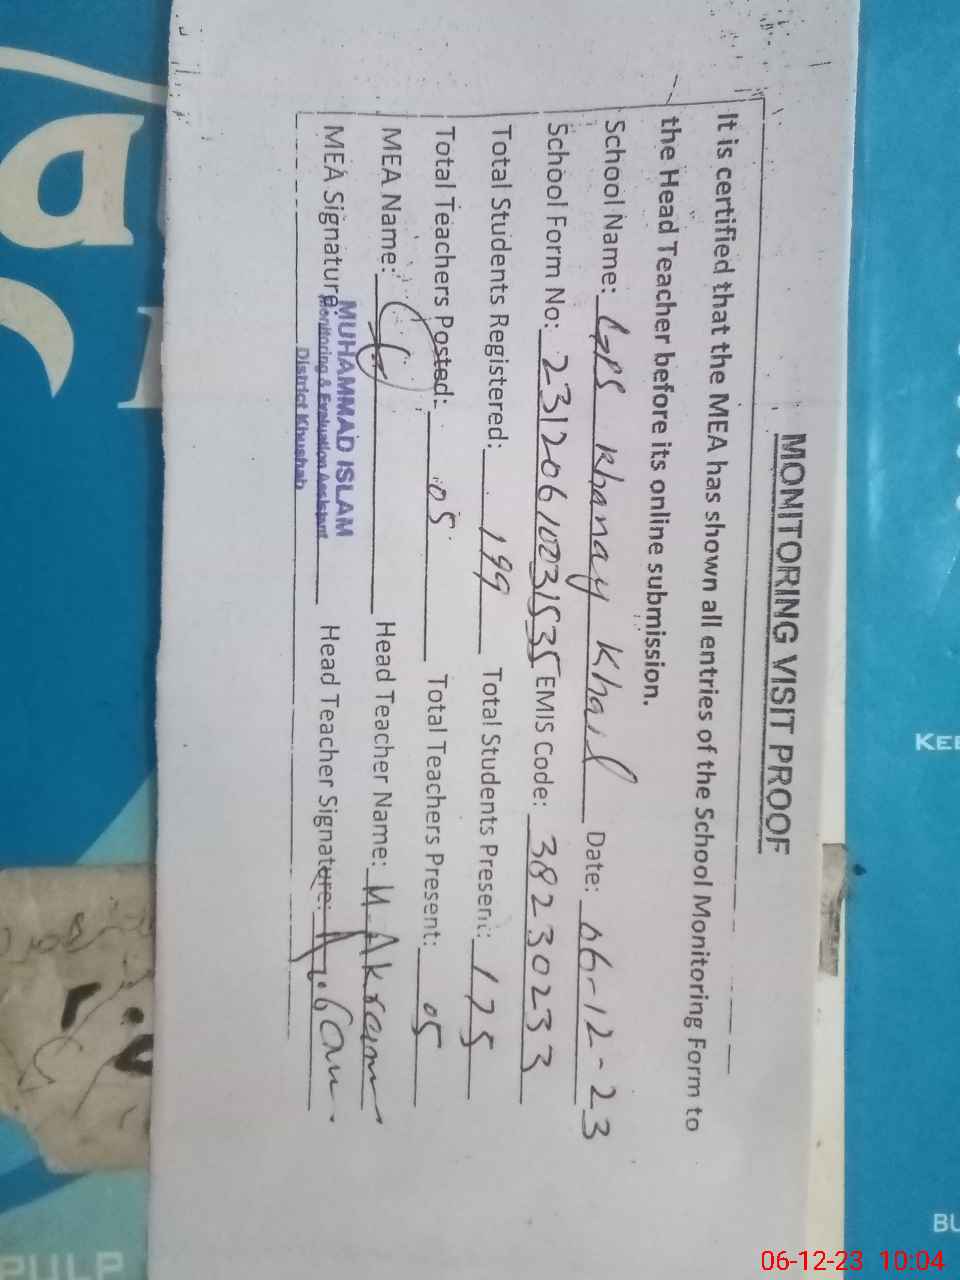 MONITORING VISIT PROOF
It is certified that the MEA has shown all entries of the School Monitoring Form to
the Head Teacher before its online submission.
School Name: GPS Khanay Khail Date: 06-12-23
School Form No: 23120610231535 EMIS Code: 38230233
Total Students Registered: 199 Total Students Present: 175
Total Teachers Posted: 05 Total Teachers Present: 05
MEA Name: Head Teacher Name: M. Akram
MEA Signature Head Teacher Signature:
MUHAMMAD ISLAM
Monitoring & Evaluation Assistant
District Khushab
KEE
BU
PULP
06-12-23 10:04